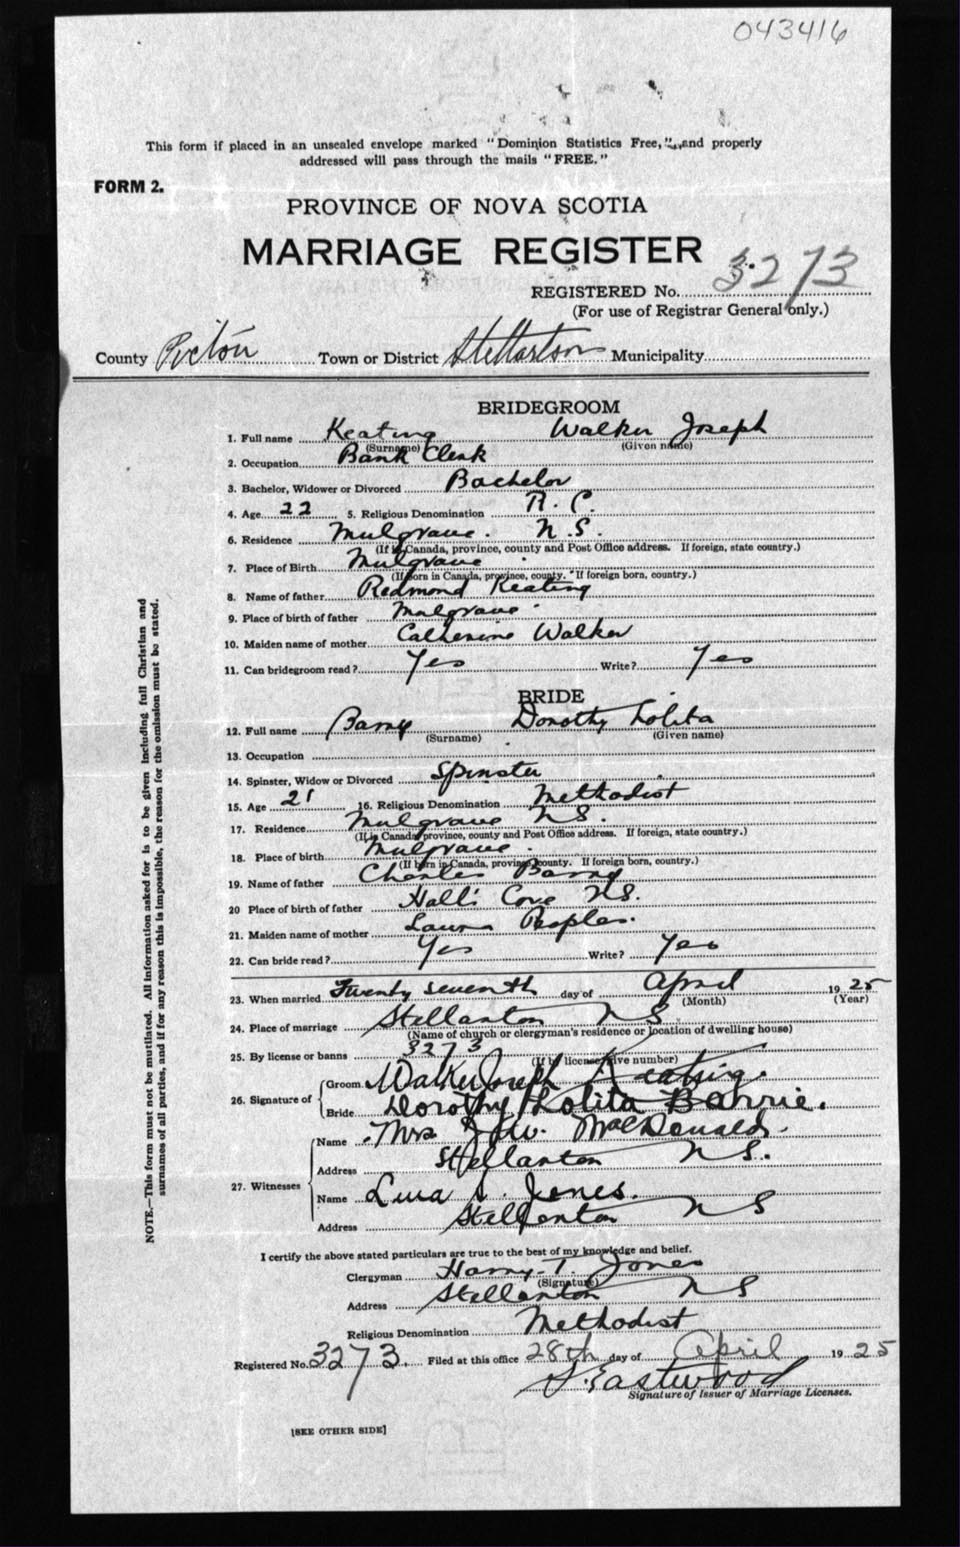 043416
This form if placed in an unsealed envelope marked "Dominion Statistics Free," and properly
addressed will pass through the mails "FREE."
FORM 2.
PROVINCE OF NOVA SCOTIA
MARRIAGE REGISTER
REGISTERED No. 3273
(For use of Registrar General only.)
County Pictou Town or District Stellarton Municipality
BRIDEGROOM
1. Full name Keating Walker Joseph
(Surname) (Given name)
2. Occupation Bank Clerk
3. Bachelor, Widower or Divorced Bachelor
4. Age 22 5. Religious Denomination R.C.
6. Residence Mulgrave. N.S.
(If in Canada, province, county and Post Office address. If foreign, state country.)
7. Place of Birth Mulgrave
(If born in Canada, province, county. If foreign born, country.)
8. Name of father Redmond Keating
9. Place of birth of father Mulgrave.
10. Maiden name of mother Catherine Walker
11. Can bridegroom read? Yes Write? Yes
BRIDE
12. Full name Barry Dorothy Lolita
(Surname) (Given name)
13. Occupation
14. Spinster, Widow or Divorced Spinster
15. Age 21 16. Religious Denomination Methodist
17. Residence Mulgrave N.S.
(If in Canada province, county and Post Office address. If foreign, state country.)
18. Place of birth Mulgrave.
(If born in Canada, province county. If foreign born, country.)
19. Name of father Charles Barry
20 Place of birth of father Hall's Cove N.S.
21. Maiden name of mother Laura Peoples.
22. Can bride read? Yes Write? Yes
23. When married Twenty seventh day of April 1925
(Month) (Year)
24. Place of marriage Stellarton N S
(Name of church or clergyman's residence or location of dwelling house)
25. By license or banns 3273
(If by license give number)
26. Signature of Groom Walker Joseph Keating.
Bride Dorothy Lolita Barrie.
27. Witnesses Name Mrs J. W. MacDonald.
Address Stellarton N.S.
Name Lina A. Jones.
Address Stellarton N S
I certify the above stated particulars are true to the best of my knowledge and belief.
Clergyman Harry T. Jones
(Signature)
Address Stellarton N S
Religious Denomination Methodist
Registered No. 3273. Filed at this office 28th day of April 1925
S. Eastwood
Signature of Issuer of Marriage Licenses.
[SEE OTHER SIDE]
NOTE.—This form must not be mutilated. All information asked for is to be given including full Christian and
surnames of all parties, and if for any reason this is impossible, the reason for the omission must be stated.